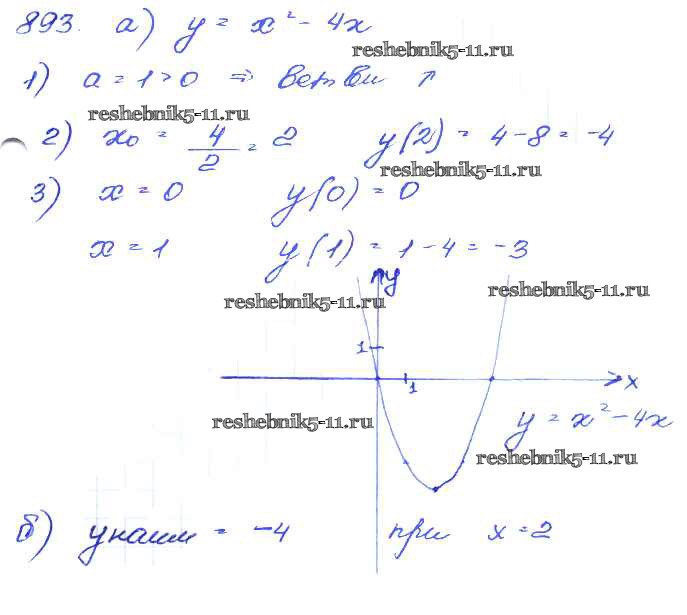 893. а) y = x² - 4x
reshebnik5-11.ru
1) a = 1 > 0 ⇒ ветви ↑
reshebnik5-11.ru
2) x₀ = 4/2 = 2 y(2) = 4 - 8 = -4
reshebnik5-11.ru
3) x = 0 y(0) = 0
x = 1 y(1) = 1 - 4 = -3
y
reshebnik5-11.ru
reshebnik5-11.ru
1
1
x
reshebnik5-11.ru
y = x² - 4x
reshebnik5-11.ru
б) y наим = -4 при x = 2